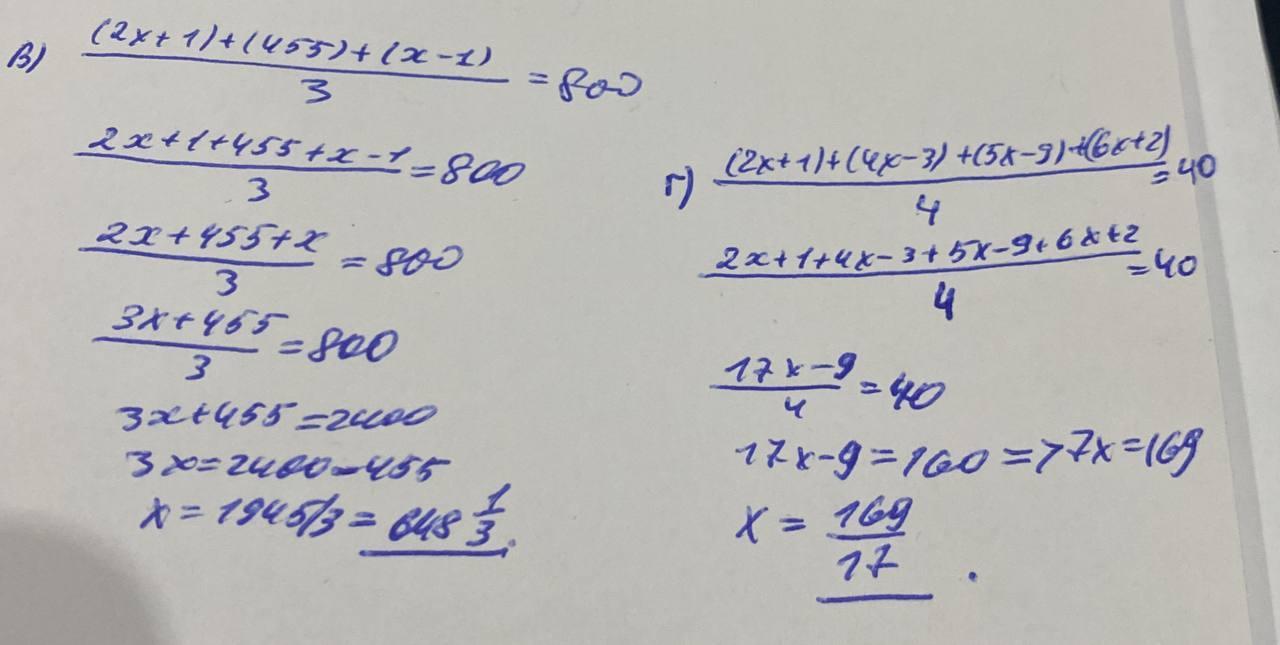 в) ((2x+1)+(455)+(x-1))/3 = 800
(2x+1+455+x-1)/3 = 800
(2x+455+x)/3 = 800
(3x+455)/3 = 800
3x+455=2400
3x=2400-455
x = 1945/3 = 648 1/3.
г) ((2x+1)+(4x-3)+(5x-9)+(6x+2))/4 = 40
(2x+1+4x-3+5x-9+6x+2)/4 = 40
(17x-9)/4 = 40
17x-9=160=>7x=169
x = 169/17.